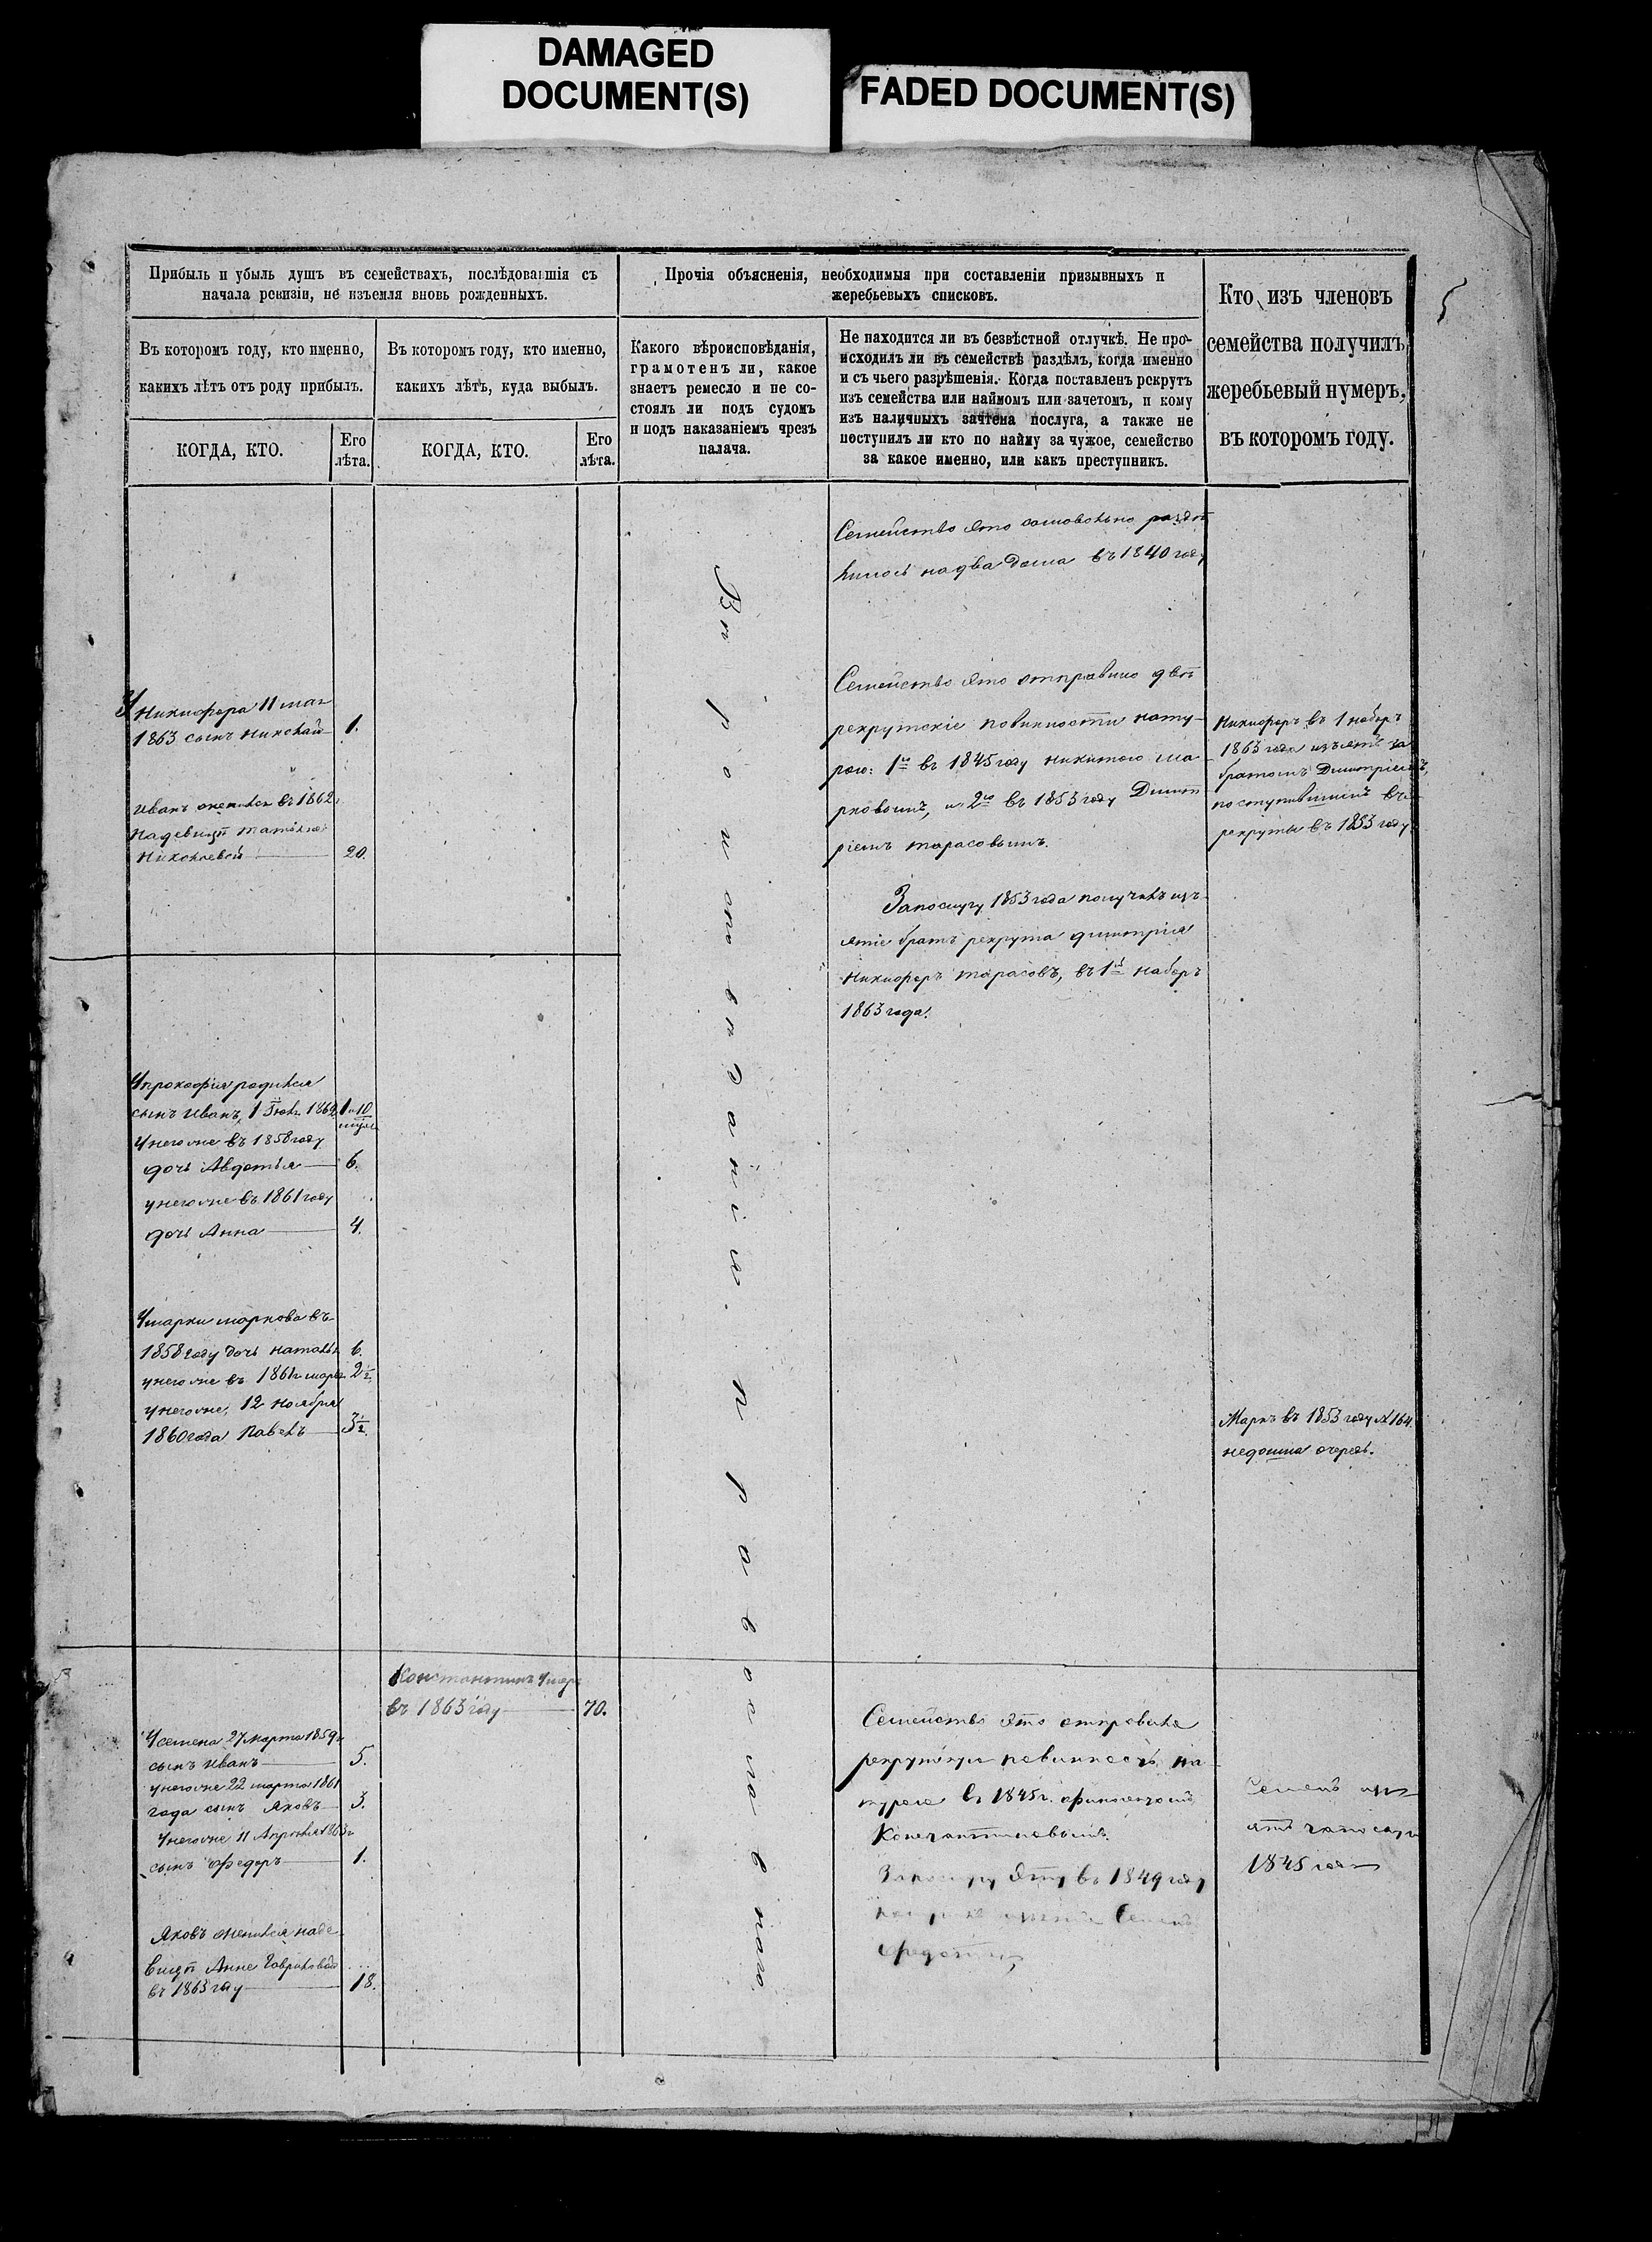 DAMAGED
DOCUMENT(S)
FADED DOCUMENT(S)
5
Прибыль и убыль душъ въ семействахъ, послѣдовавшія съ
начала ревизіи, не изъемля вновь рожденныхъ.
Въ которомъ году, кто именно,
какихъ лѣтъ отъ роду прибылъ.
КОГДА, КТО.
Его
лѣта.
Въ которомъ году, кто именно,
какихъ лѣтъ, куда выбылъ.
КОГДА, КТО.
Его
лѣта.
Прочія объясненія, необходимыя при составленіи призывныхъ и
жеребьевыхъ списковъ.
Какого вѣроисповѣданія,
грамотенъ ли, какое
знаетъ ремесло и не со-
стоялъ ли подъ судомъ
и подъ наказаніемъ чрезъ
палача.
Не находится ли въ безвѣстной отлучкѣ. Не про-
исходилъ ли въ семействѣ раздѣлъ, когда именно
и съ чьего разрѣшенія. Когда поставленъ рекрутъ
изъ семейства или наймомъ или зачетомъ, и кому
изъ наличныхъ зачтена послуга, а также не
поступилъ ли кто по найму за чужое, семейство
за какое именно, или какъ преступникъ.
Кто изъ членовъ
семейства получилъ
жеребьевый нумеръ,
въ которомъ году.
У Никифора 11 мая
1863 сынъ Николай 1.
Иванъ женился въ 1862
На девицѣ Татьяне
Николаевой 20.
У Прокофия родился
сынъ Иванъ, 1 1862 1 10
У него же въ 1858 году
дочь Авдотья 6.
у него же въ 1861 году
дочь Анна 4.
У Марки Маркова въ
1858 году дочь Наталья 6.
у него же въ 1861 2½
у него же, 12 Ноября
1860 года Павелъ 3½.
У Семена 27 Марта 1859
сынъ Иванъ 5.
у него же 22 марта 1861
года сынъ Яковъ 3.
У него же 11 Апреля 1863
сынъ Федоръ 1.
Яковъ женился на де
вицѣ Анне Гавриловой
въ 1863 году 18.
Константинъ умеръ
въ 1863 году 70.
Вѣроисповѣданія православнаго
Семейство это самовольно раздѣ
лилось на два дома въ 1840 году
Семейство это отправило двѣ
рекрутскіе повинности нату-
рою: 1ю въ 1845 году Никитою Ма
рковымъ, и 2ю въ 1853 году Димит
ріемъ Тарасовымъ.
За послугу 1853 года получилъ изъ-
ятіе братъ рекрута Димитрія
Никифоръ Тарасовъ, въ 1й наборъ
1863 года.
Семейство это отправило
рекрутскую повинность на
турою въ 1845 г.
Константиновымъ.
За послугу эту въ 1849 году
Семенъ
Никифоръ въ 1 наборъ
1863 года изъятъ за
братомъ Димитріемъ,
поступившимъ въ
рекруты въ 1853 году
Маркъ въ 1853 году № 164.
недошла очередь.
Семенъ изъ
ятъ за послугу
1845 года